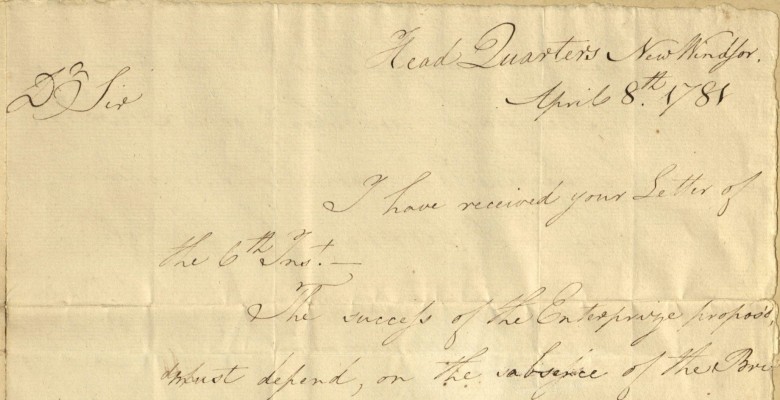 Head Quarters New Windsor.
April 8.th 1781
Dr Sir
I have received your Letter of
the 6th Inst. —
The success of the Enterprize propos'd,
must depend, on the absence of the Bri